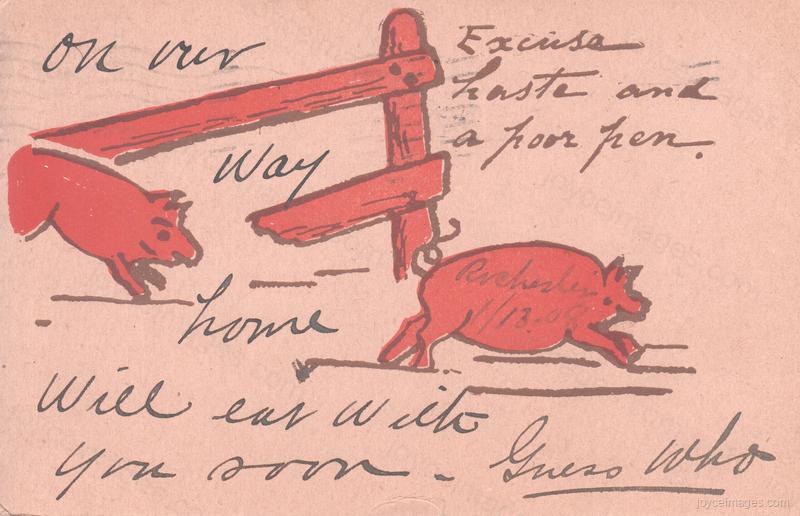 on our
way
home
Will eat with
you soon - Guess Who
Excuse
haste and
a poor pen.
Rochester
1/13-09
joyceimages.com